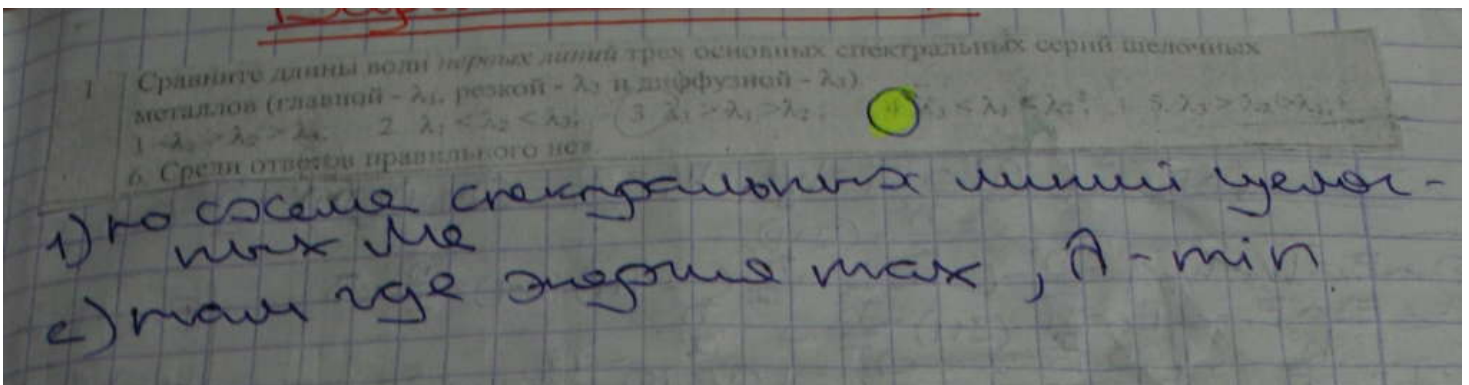 1 Сравните длины волн первых линий трех основных спектральных серий щелочных
металлов (главной - λ₁, резкой - λ₂ и диффузной - λ₃)
1 λ₁ > λ₂ > λ₃. 2 λ₁ < λ₂ < λ₃; 3 λ₃ > λ₁ > λ₂; λ₃ < λ₁ < λ₂; 5. λ₃ > λ₂ > λ₁;
6. Среди ответов правильного нет
1) по схема спектральных линий щелоч-
ных Ме
2) там где энергия max, λ - min